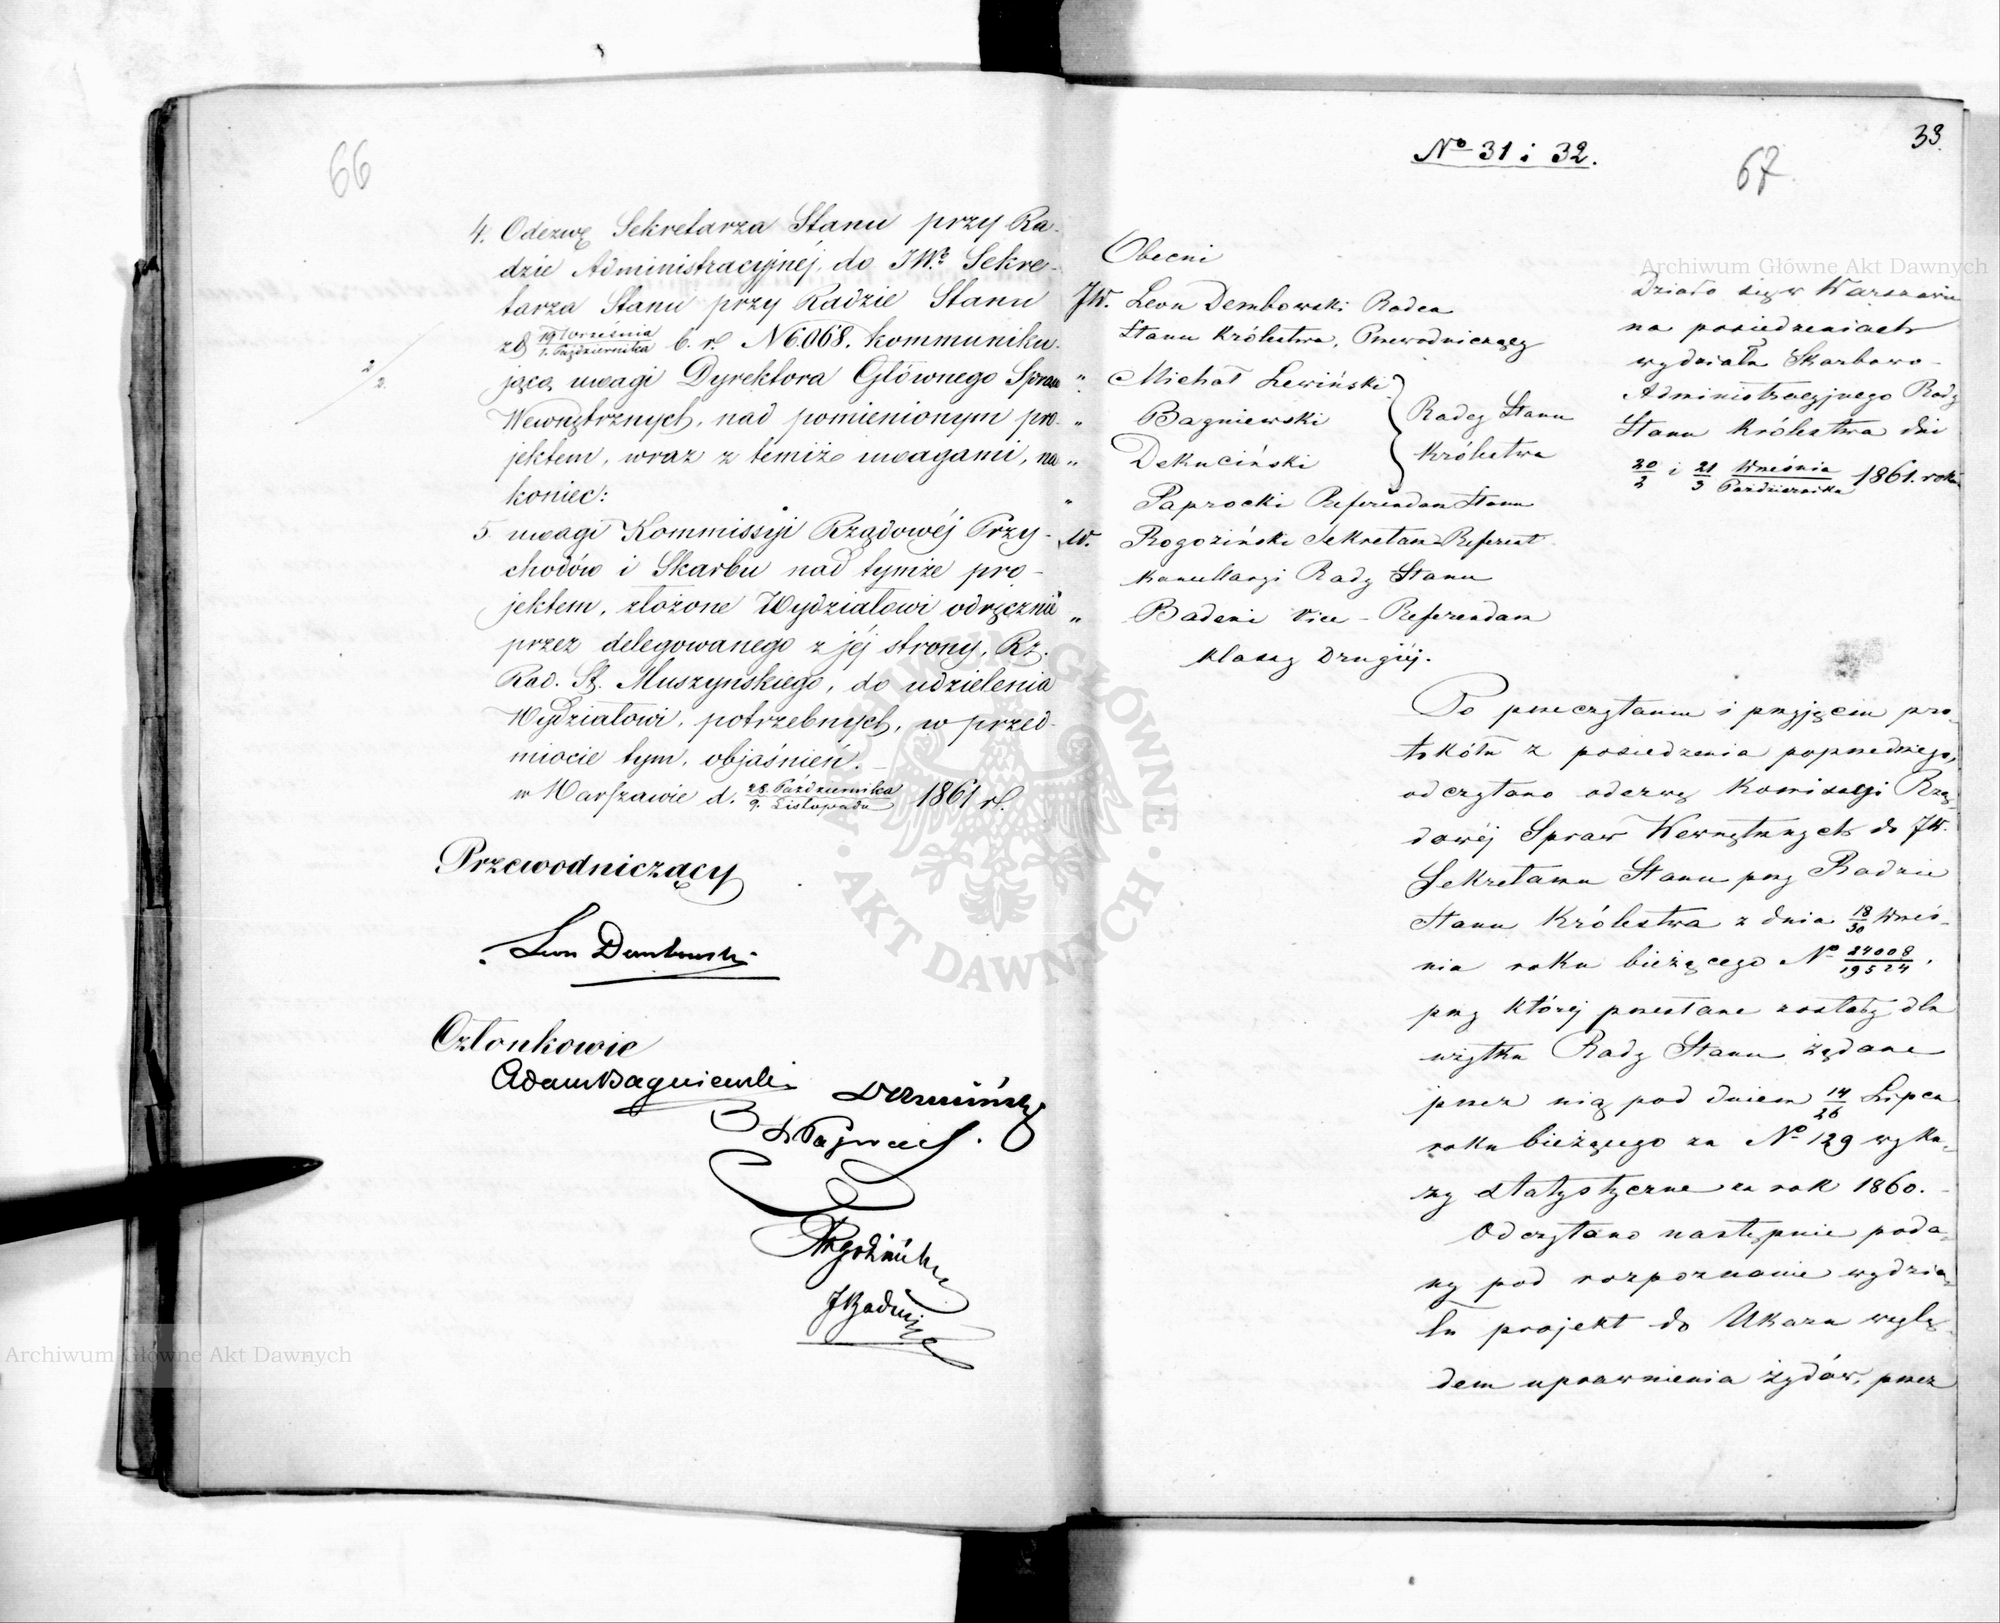 66
4. Odezwę Sekretarza Stanu przy Ra-
dzie Administracyjnéj, do JW. Sekre-
tarza Stanu przy Radzie Stanu
z d. 19 Września / 1. Października b. r. N 6.068. kommuniku-
jącą uwagi Dyrektora Głównego Spraw
Wewnętrznych, nad pomienionym pro-
jektem, wraz z temiż uwagami, na
koniec:
5. uwagi Kommissyi Rządowéj Przy-
chodów i Skarbu nad tymże pro-
jektem, złożone Wydziałowi odręcznie
przez delegowanego z jéj strony, Rz.
Rad. St. Muszyńskiego, do udzielenia
Wydziałowi, potrzebnych, w przed-
miocie tym, objaśnień. —
w Warszawie d. 28 Października / 9. Listopada 1861 r.
Przewodniczący
Leon Dembowski
Członkowie
Adam Bagniewski
33.
67
No 31 i 32.
Obecni
JW. Leon Dembowski Radca
Stanu Królestwa, Przewodniczący
" Michał Lewiński
" Bagniewski
" Dekuciński
Radcy Stanu
Królestwa
" Paprocki Referendarz Stanu
W. Rogoziński Sekretarz Referent
Kancellaryi Rady Stanu
" Badeni Vice-Referendarz
klassy Drugiéj.
Działo się w Warszawie
na posiedzeniach
wydziału Skarbowo-
Administracyjnego Rady
Stanu Królestwa dni
20/2 i 21/3 Września / Października 1861. roku
Po przeczytaniu i przyjęciu pro-
tokółu z posiedzenia poprzedniego,
odczytano odezwę Komissyi Rzą-
dowéj Spraw Wewnętrznych do JW.
Sekretarza Stanu przy Radzie
Stanu Królestwa z dnia 18/30 Wrześ-
nia roku bieżącego No 27008/19524,
przy któréj przesłane zostały dla
użytku Rady Stanu żądane
przez nią pod dniem 14/26 Lipca
roku bieżącego za No 129 wyka-
zy statystyczne za rok 1860. -
Odczytano następnie poda-
ny pod rozpoznanie wydzia-
łu projekt do Ukazu wzglę-
dem uprawnienia żydów, przez
Archiwum Główne Akt Dawnych
Archiwum Główne Akt Dawnych
ARCHIWUM GŁÓWNE · AKT DAWNYCH ·